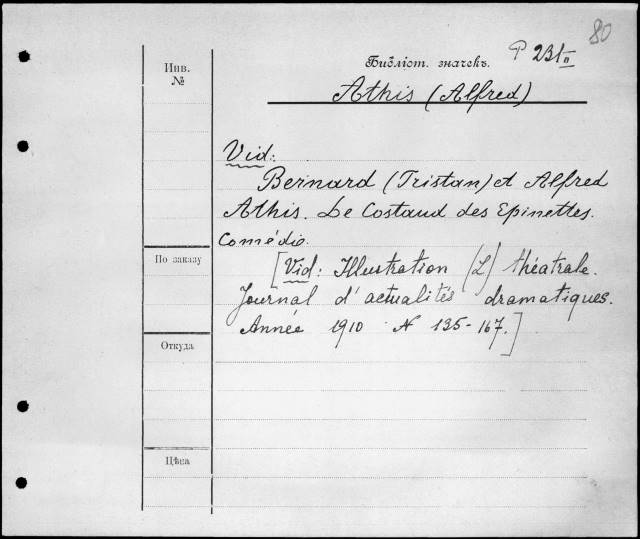 80
P 231 II
Инв.
№
Библіот. значекъ.
Athis (Alfred)
Vid:
Bernard (Tristan) et Alfred
Athis. Le Costaud des Epinettes.
Comédie.
По заказу
[Vid: Illustration (L) théatrale.
Journal d'actualités dramatiques.
Année 1910 N 135-167.]
Откуда
Цѣна